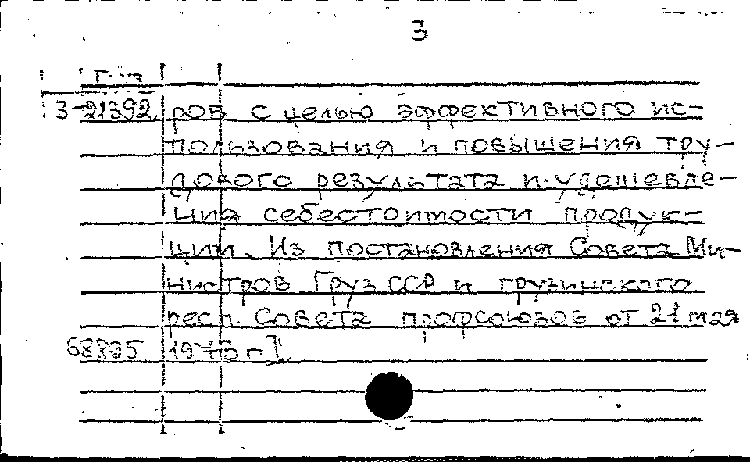 3
3-21392 ров с целью эффективного ис-
пользования и повышения тру-
дового результата и удешевле-
ния себестоимости продук-
ции. Из постановления Совета Ми-
нистров Груз ССР и грузинского
респ. Совета профсоюзов от 21 мая
68835 1976 г]